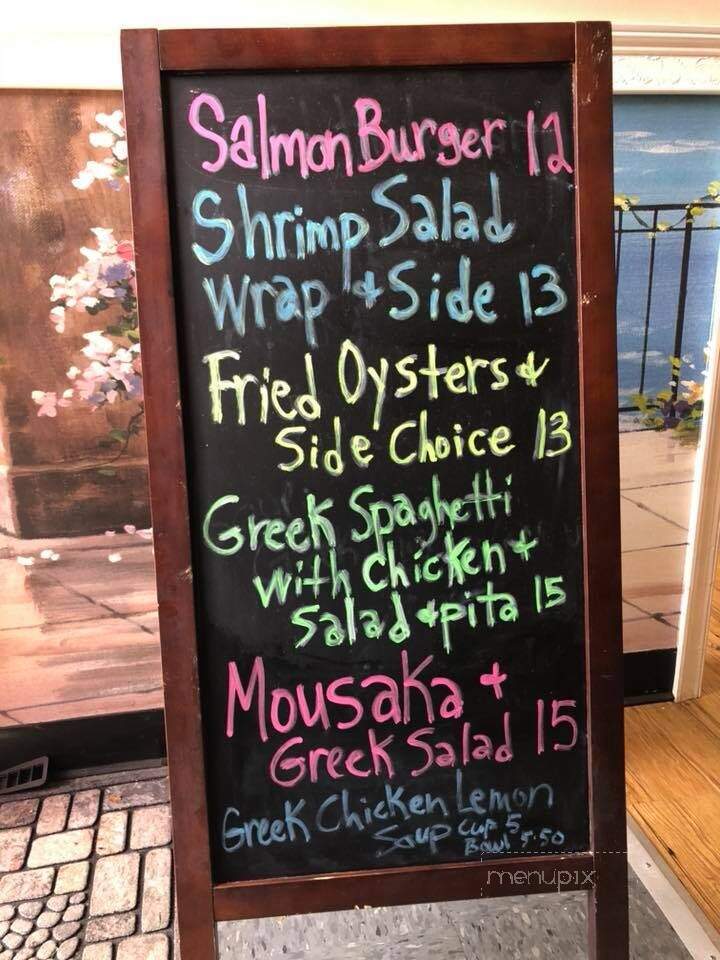 Salmon Burger 12
Shrimp Salad
Wrap + Side 13
Fried Oysters +
Side Choice 13
Greek Spaghetti
with Chicken +
Salad + pita 15
Mousaka +
Greek Salad 15
Greek Chicken Lemon
Soup Cup 5
Bowl 5.50
menupix